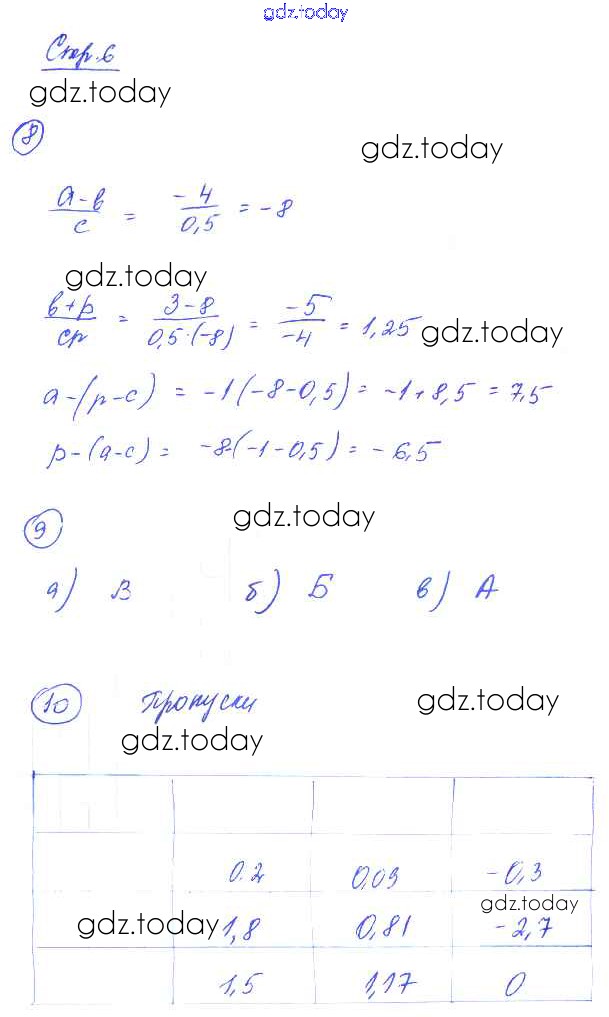 gdz.today
Стр. 6
gdz.today
8
gdz.today
(a-b)/c = -4/0,5 = -8
gdz.today
(b+p)/cp = (3-8)/(0,5·(-8)) = -5/-4 = 1,25
gdz.today
a-(p-c) = -1(-8-0,5) = -1+8,5 = 7,5
p-(a-c) = -8-(-1-0,5) = -6,5
gdz.today
9
а) В б) Б в) А
10 Пропуски
gdz.today
gdz.today
0.2 0,09 -0,3
gdz.today
gdz.today 1,8 0,81 -2,7
1,5 1,17 0